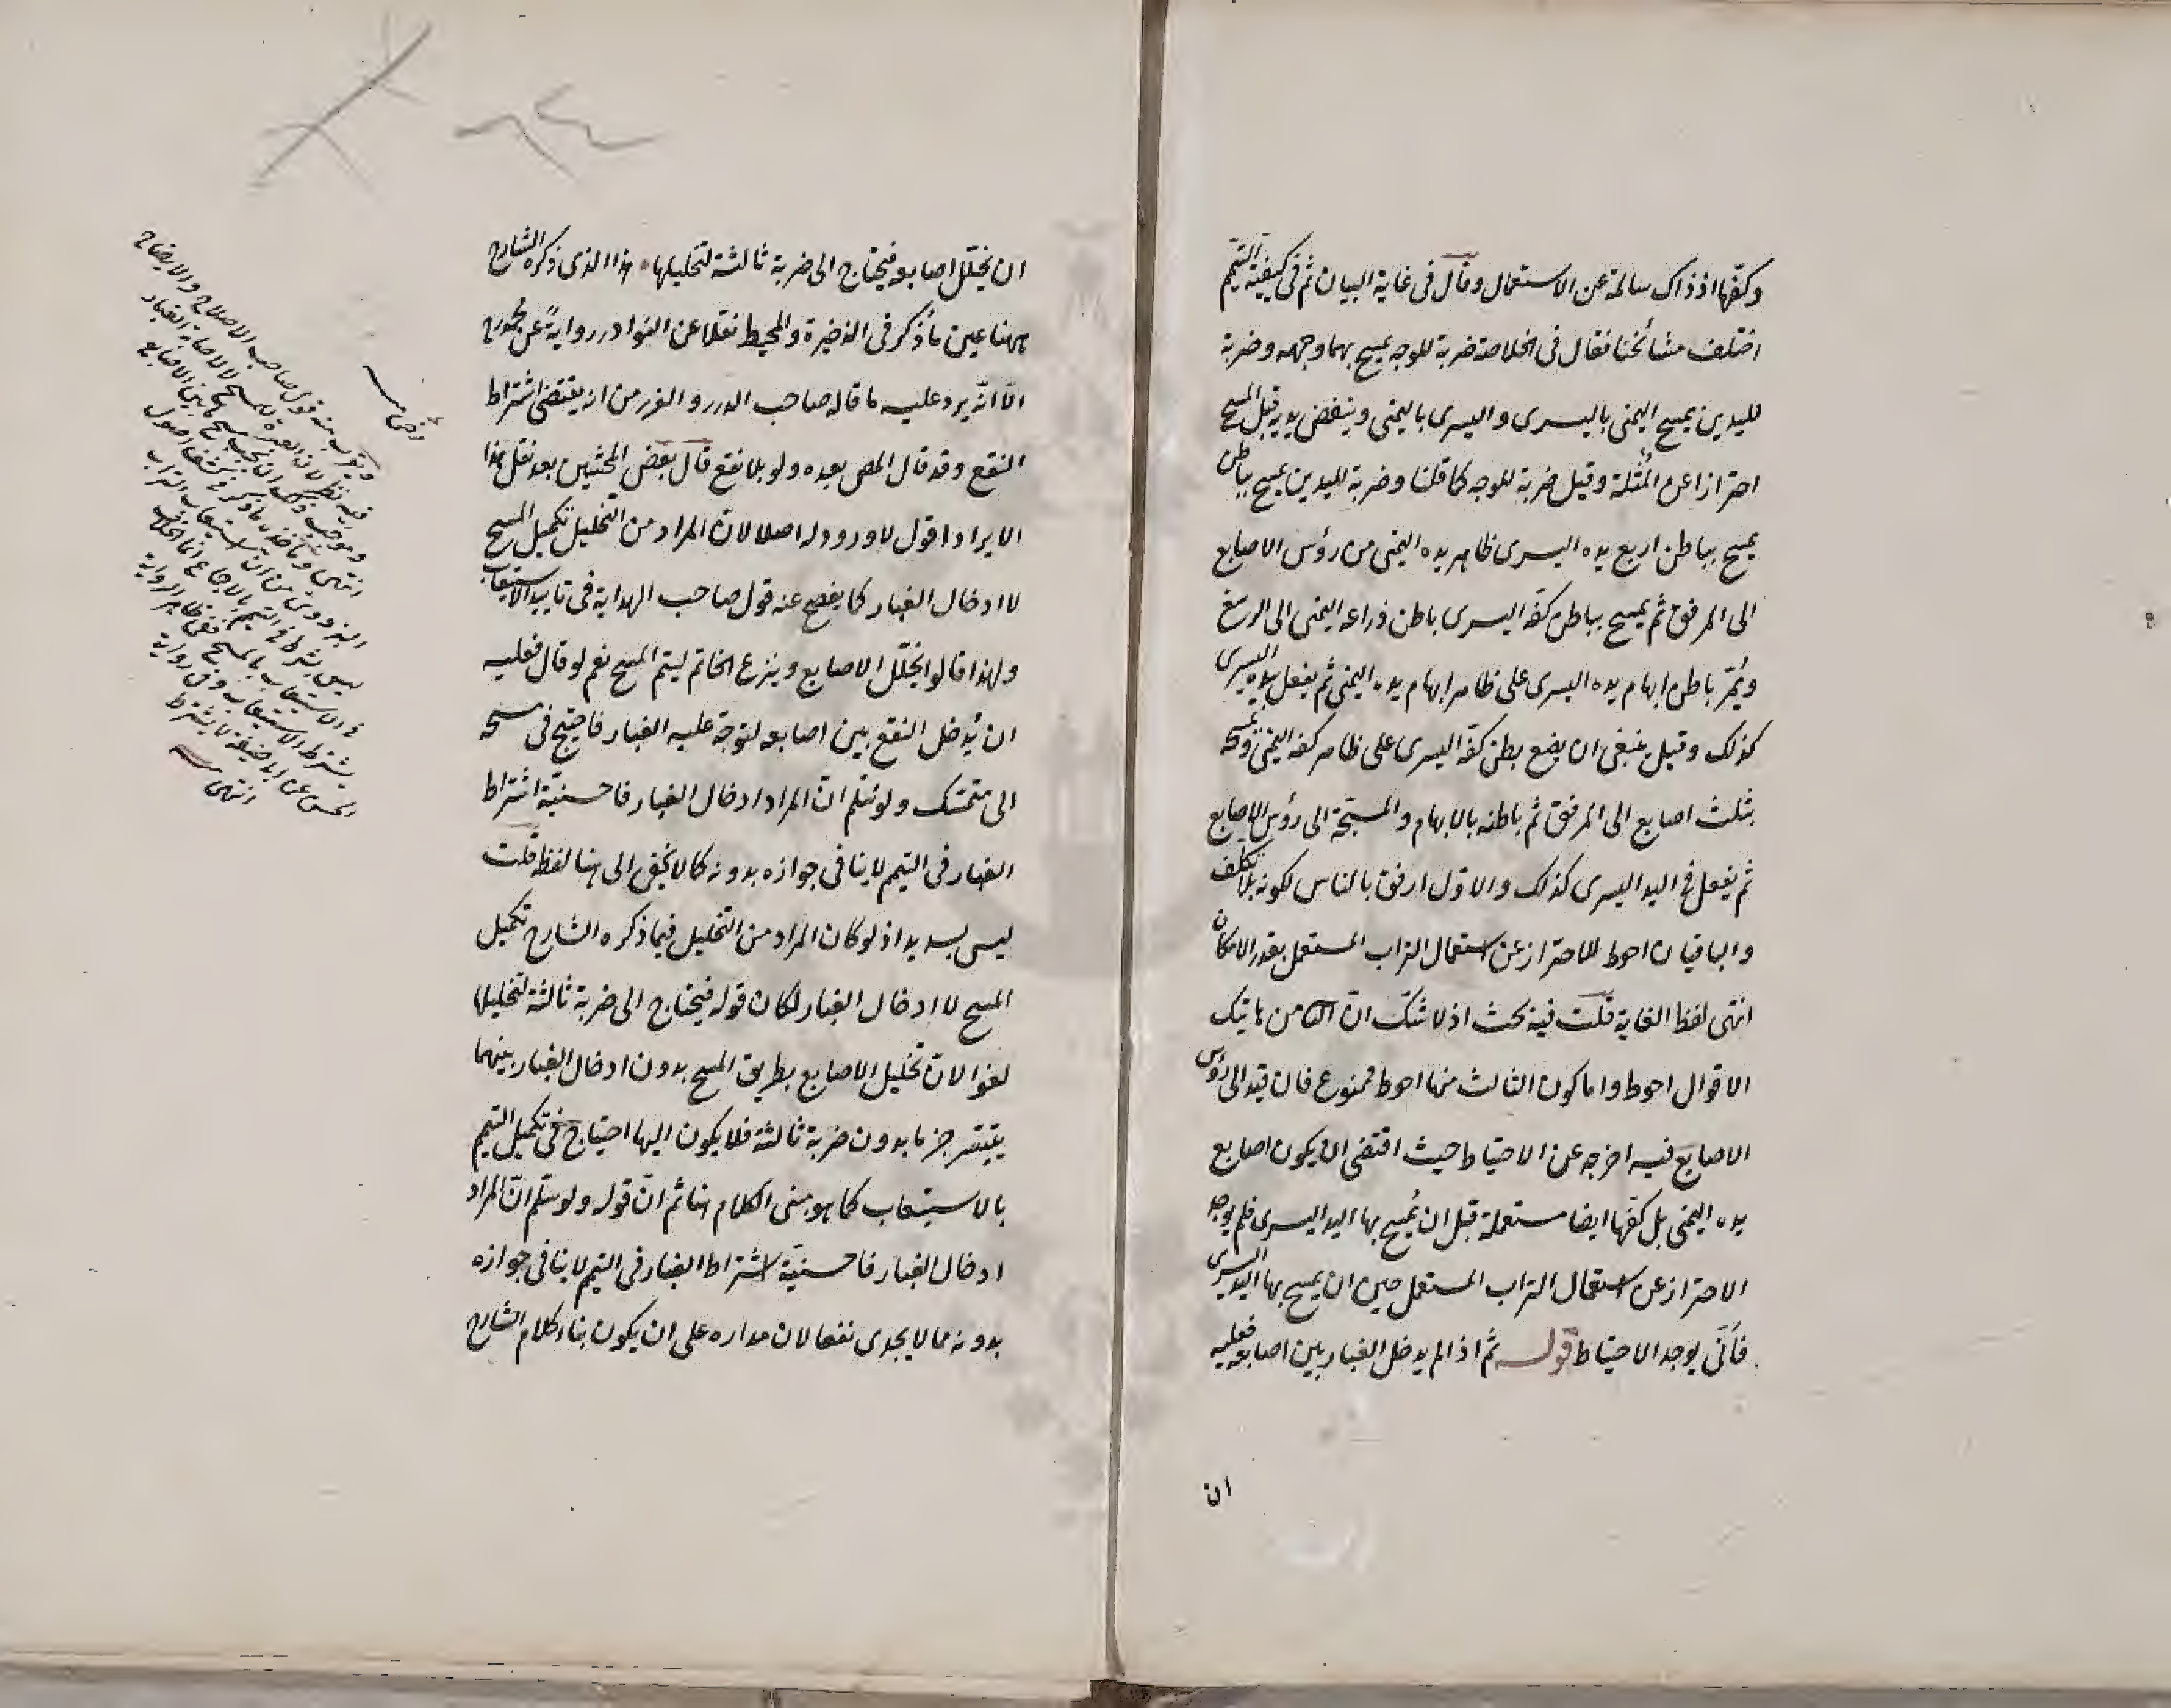 وكفها اذ ذاك سالمة عن الاستعمال وقال فى غاية البيان ثم فى كيفية التيمم
اختلف مشائخنا فقال فى الخلاصة ضربة للوجه يمسح بهما وجهه وضربة
لليدين يمسح اليمنى باليسرى واليسرى باليمنى وينفض يديه قبل المسح
احترازا عن المثلة وقيل ضربة للوجه كما قلنا وضربة لليدين يمسح بباطن
يمسح بباطن اربع يده اليسرى ظاهر يده اليمنى من رؤس الاصابع
الى المرفق ثم يمسح بباطن كفه اليسرى باطن ذراعه اليمنى الى الرسغ
ويمر باطن ابهام يده اليسرى على ظاهر ابهام يده اليمنى ثم يفعل بيده اليسرى
كذلك وقيل ينبغى ان يضع بطن كفه اليسرى على ظاهر كفه اليمنى ويمسح
بثلث اصابع الى المرفق ثم باطنه بالابهام والمسبحة الى رؤس الاصابع
ثم يفعل فى اليد اليسرى كذلك والاول ارفق بالناس لكونه بلا تكلف
والباقيان احوط للاحتراز عن استعمال التراب المستعمل بقدر الامكان
انتهى لفظ الغاية قلت فيه بحث اذ لا شك ان من هاتيك
الاقوال احوط واما كون الثالث منها احوط فممنوع فان قيد الى رؤس
الاصابع فيه اخرجه عن الاحتياط حيث اقتضى ان يكون اصابع
يده اليمنى بل كفها ايضا مستعملة قبل ان يمسح بها اليد اليسرى فلم يوجد
الاحتراز عن استعمال التراب المستعمل حين ان يمسح بها اليد اليسرى
فأنى يوجد الاحتياط قوله ثم اذا لم يدخل الغبار بين اصابعه فعليه
ان
ان يخلل اصابعه فيحتاج الى ضربة ثالثة لتخليلها هذا الذى ذكره الشارح
ههنا عين ما ذكر فى الذخيرة والمحيط نقلا عن النوادر رواية عن محمد رح
الا انه يرد عليه ما قاله صاحب الدرر والغرر من انه يقتضى اشتراط
النقع وقد قال المص بعده ولو بلا نقع قال بعض المحشين بعد نقل هذا
الايراد اقول لا ورود له اصلا لان المراد من التخليل تكميل المسح
لا ادخال الغبار كما يفصح عنه قول صاحب الهداية فى تاييد الاستيعاب
ولهذا قالوا يخلل الاصابع وينزع الخاتم ليتم المسح نعم لو قال فعليه
ان يدخل النقع بين اصابعه لتوجه عليه الغبار فاحتيج فى مسحه
الى متمسك ولو سلم ان المراد ادخال الغبار فاحسنية اشتراط
الغبار فى التيمم لا ينافى جوازه بدونه كما لا يخفى الى هنا لفظه قلت
ليس بسديد اذ لو كان المراد من التخليل فيما ذكره الشارح تكميل
المسح لا ادخال الغبار لكان قوله فيحتاج الى ضربة ثالثة لتخليلها
لغوا لان تخليل الاصابع بطريق المسح بدون ادخال الغبار بينهما
يتيسر جزما بدون ضربة ثالثة فلا يكون اليها احتياج فى تكميل التيمم
بالاستيعاب كما هو مبنى الكلام هنا ثم ان قوله ولو سلم ان المراد
ادخال الغبار فاحسنية اشتراط الغبار فى التيمم لا ينافى جوازه
بدونه مما لا يجدى نفعا لان مداره على ان يكون بناء كلام الشارح
ويقرب منه قول صاحب الاصلاح والايضاح
فيه نظر لان العبرة للمسح لا لاصابة الغبار
انتهى
ليس بشرط فى التيمم بالاجماع انما اختلف
فى الاستيعاب بالمسح ففى ظاهر الرواية
يشترط الاستيعاب وفى رواية
الحسن عن ابى حنيفة لا يشترط
انتهى